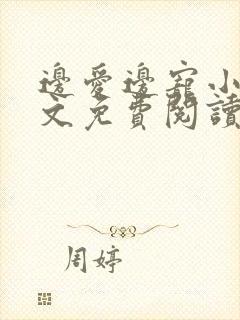 邊愛邊寵小
文免費閱讀
周婷